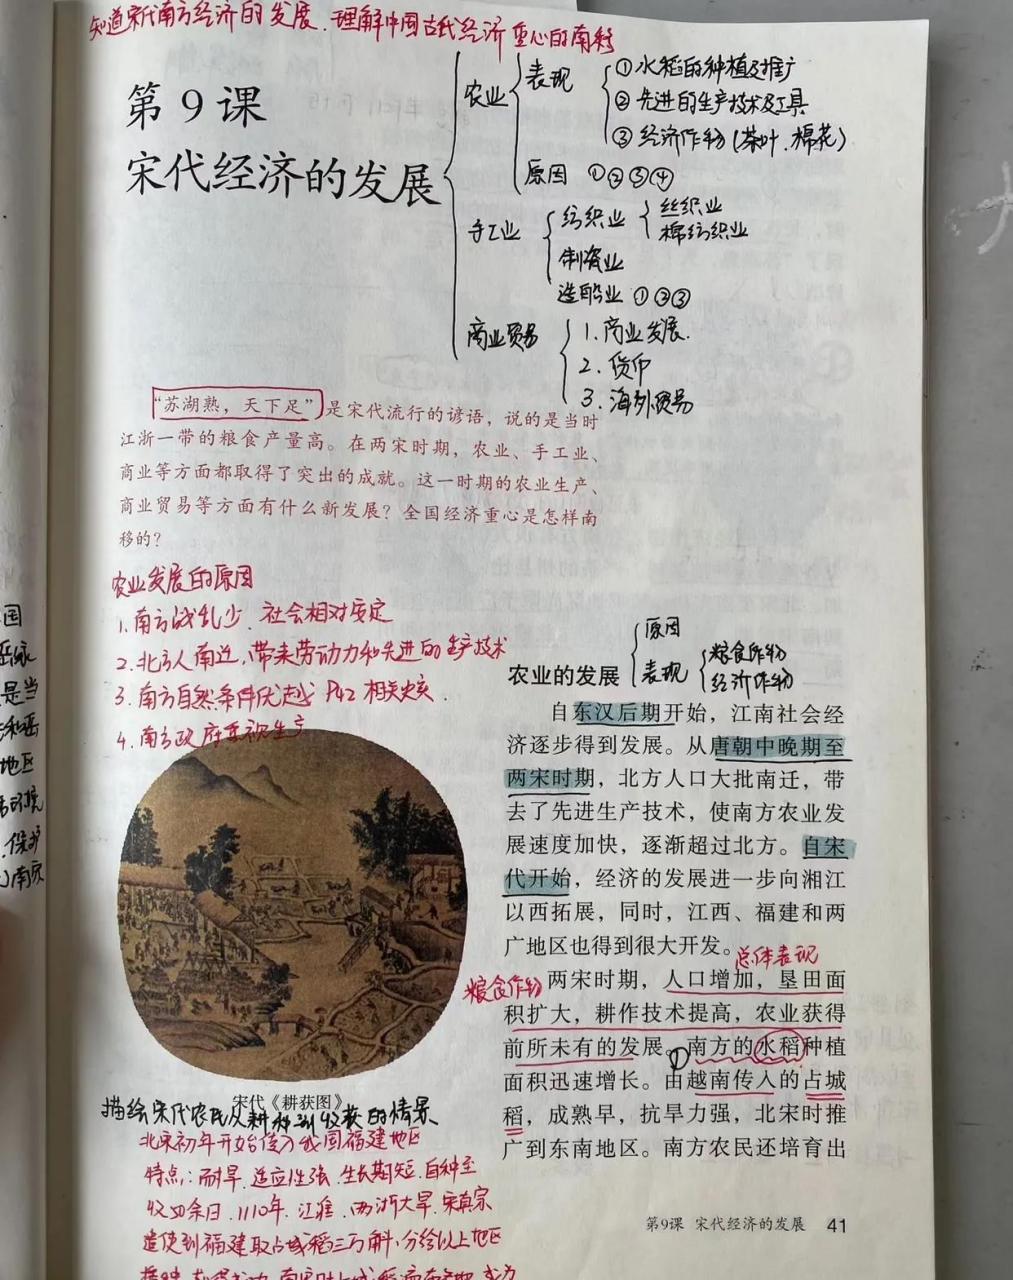 知道宋代南方经济的发展、理解中国古代经济重心的南移
第9课
宋代经济的发展
农业
表现
①水稻的种植及推广
②先进的生产技术及工具
③经济作物(茶叶、棉花)
原因 ①②③④
手工业
纺织业
丝织业
棉纺织业
制瓷业
造船业 ①②③
商业贸易
1.商业发展.
2.货币
3.海外贸易
“苏湖熟，天下足”是宋代流行的谚语，说的是当时
江浙一带的粮食产量高。在两宋时期，农业、手工业、
商业等方面都取得了突出的成就。这一时期的农业生产、
商业贸易等方面有什么新发展？全国经济重心是怎样南
移的？
农业发展的原因
1.南方战乱少、社会相对安定
2.北方人南迁,带来劳动力和先进的生产技术
3.南方自然条件优越 P42 相关史实.
4.南方政府重视生产
农业的发展
原因
表现
粮食作物
经济作物
自东汉后期开始，江南社会经
济逐步得到发展。从唐朝中晚期至
两宋时期，北方人口大批南迁，带
去了先进生产技术，使南方农业发
展速度加快，逐渐超过北方。自宋
代开始，经济的发展进一步向湘江
以西拓展，同时，江西、福建和两
广地区也得到很大开发。
总体表现
粮食作物
两宋时期，人口增加，垦田面
积扩大，耕作技术提高，农业获得
前所未有的发展。①南方的水稻种植
面积迅速增长。由越南传入的占城
稻，成熟早，抗旱力强，北宋时推
广到东南地区。南方农民还培育出
宋代《耕获图》
描绘宋代农民从耕种到收获的情景
北宋初年开始传入我国福建地区
特点:耐旱、适应性强、生长期短、自种至
收50余日.1110年.江淮、两浙大旱.宋真宗
遣使到福建取占城稻三万斛,分给以上地区
国
是当
地区
保护
南宋
第9课 宋代经济的发展 41